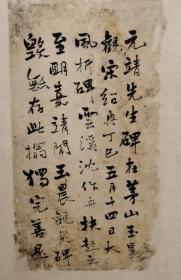 元靖先生碑在茅山玉晨
觀宋紹興丁巳五月十四日大
風折碑雲溪沈作舟扶起立
至明嘉靖間玉晨觀災碑
毀無存此搨獨完善是